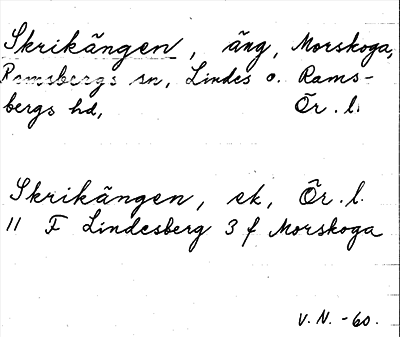 Skrikängen, äng, Morskoga,
Ramsbergs sn, Lindes o. Rams-
bergs hd, Ör. l.
Skrikängen, ek, Ör. l.
11 F Lindesberg 3 f Morskoga
V. N. -60.